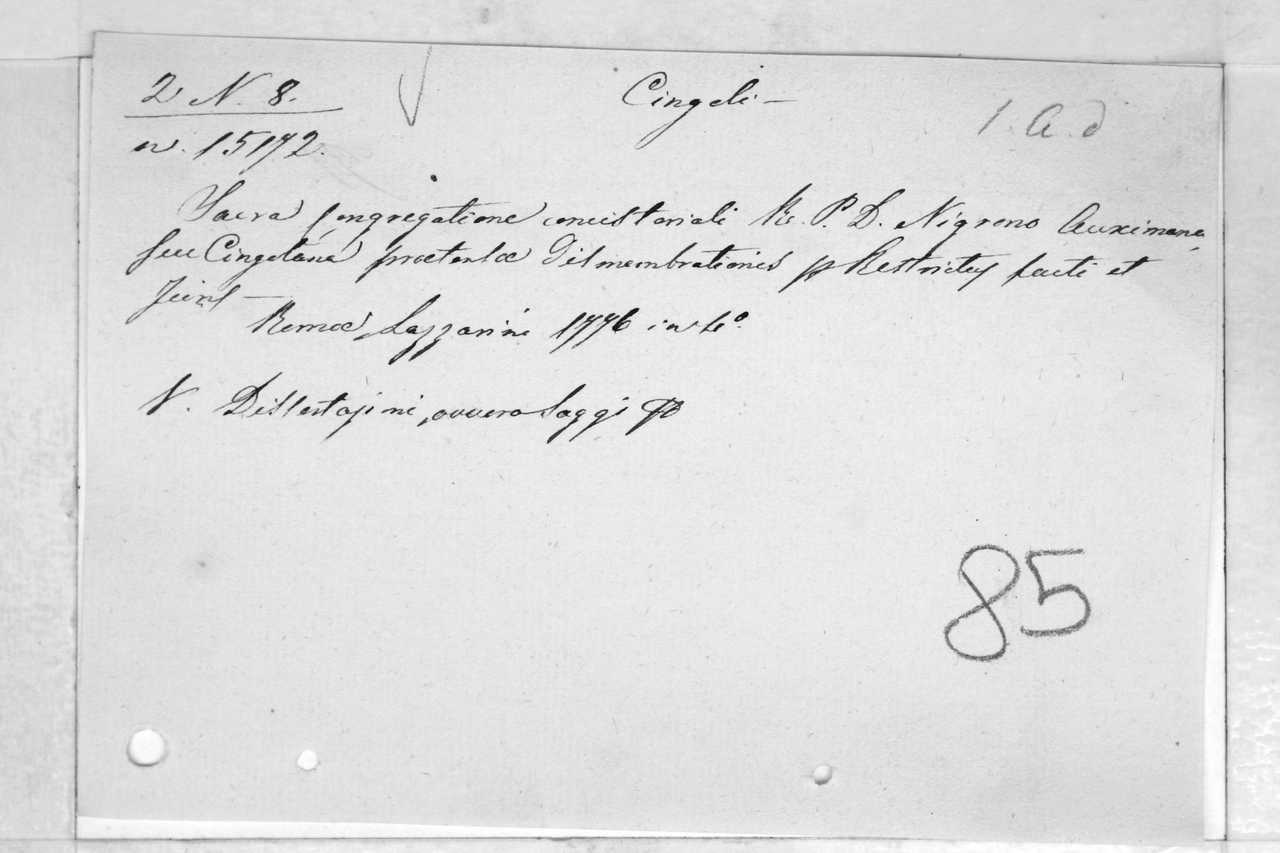 2 N. 8.
Cingoli -
1. A. d
n. 15172.
Sacra Congregatione concistoriali R. P. D. Nigrono Auximana,
seu Cingolana praetensae Dismembrationis pp Restrictus facti et
Juris -
Romae, Lazzarini 1776 in 4º.
V. Dissertazioni, ovvero Saggi
85